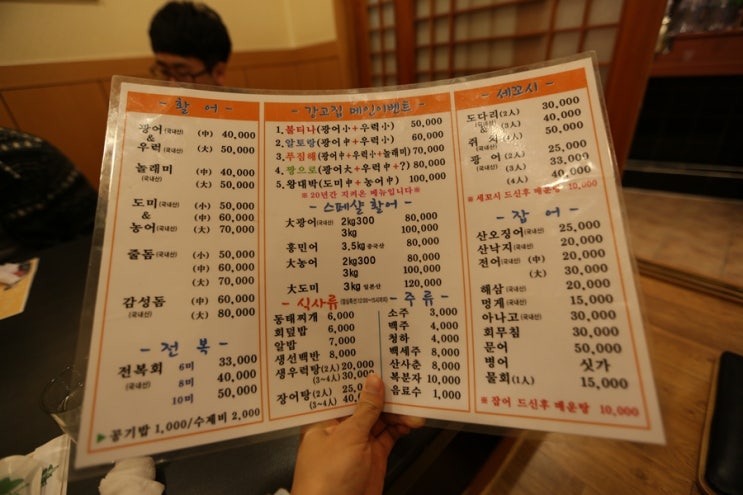 - 활 어 -
광어(국내산) (中) 40,000
&
우럭(국내산) (大) 50,000
놀래미 (中) 40,000
(국내산) (大) 50,000
도미(국내산) (小) 50,000
& (中) 60,000
농어(국내산) (大) 70,000
줄돔(국내산) (小) 50,000
(中) 60,000
(大) 70,000
감성돔 (中) 60,000
(국내산) (大) 80,000
- 전 복 -
전복회 6미 33,000
(국내산) 8미 40,000
10미 50,000
▶ 공기밥 1,000/수제비 2,000
- 강고집 메인이벤트 -
1. 불티나(광어小+우럭小) 50,000
2. 알토랑(광어中+우럭小) 60,000
3. 푸짐해(광어中+우럭小+놀래미) 70,000
4. 짱으로(광어大+우럭中+?) 80,000
5. 왕대박(도미中+농어中) 100,000
※20년간 지켜온 메뉴입니다※
- 스페샬 활어 -
大광어(국내산) 2kg300 80,000
3kg 100,000
홍민어 3,5kg중국산 80,000
大농어 2kg300 80,000
(국내산) 3kg 100,000
大도미 3kg일본산 120,000
- 식사류
동태찌개 6,000
회덮밥 6,000
알밥 7,000
생선백반 8,000
생우럭탕(2人) 20,000
(3~4人) 30,000
장어탕(2人)
(3~4人) 40,000
- 주 류 -
소주 3,000
맥주 4,000
청하 4,000
백세주 8,000
산사춘 8,000
복분자 10,000
음료수 1,000
- 세꼬시 -
도다리(2人) 30,000
& (3人) 40,000
(4人) 50,000
광 어 (2人) 25,000
(국내산) (3人) 33,000
(4人) 40,000
※세꼬시 드신후 매운탕 10,000
- 잡 어 -
산오징어(국내산) 25,000
산낙지(국내산) 20,000
전어(국내산) (中) 20,000
(大) 30,000
해삼(국내산) 20,000
멍게(국내산) 15,000
아나고(국내산) 30,000
회무침 30,000
문어 50,000
병어 싯가
물회(1人) 15,000
※ 잡어 드신후 매운탕 10,000